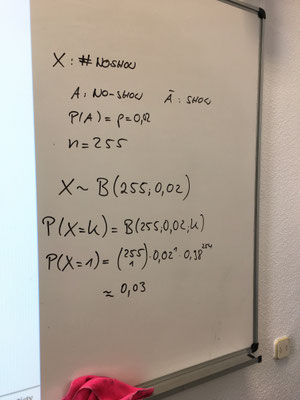 X: # NOSHOW
A: NO-SHOW Ā: SHOW
P(A) = p = 0,02
n = 255
X ~ B(255; 0,02)
P(X=k) = B(255; 0,02; k)
P(X=1) = (255 1) · 0,02¹ · 0,98²⁵⁴
≈ 0,03